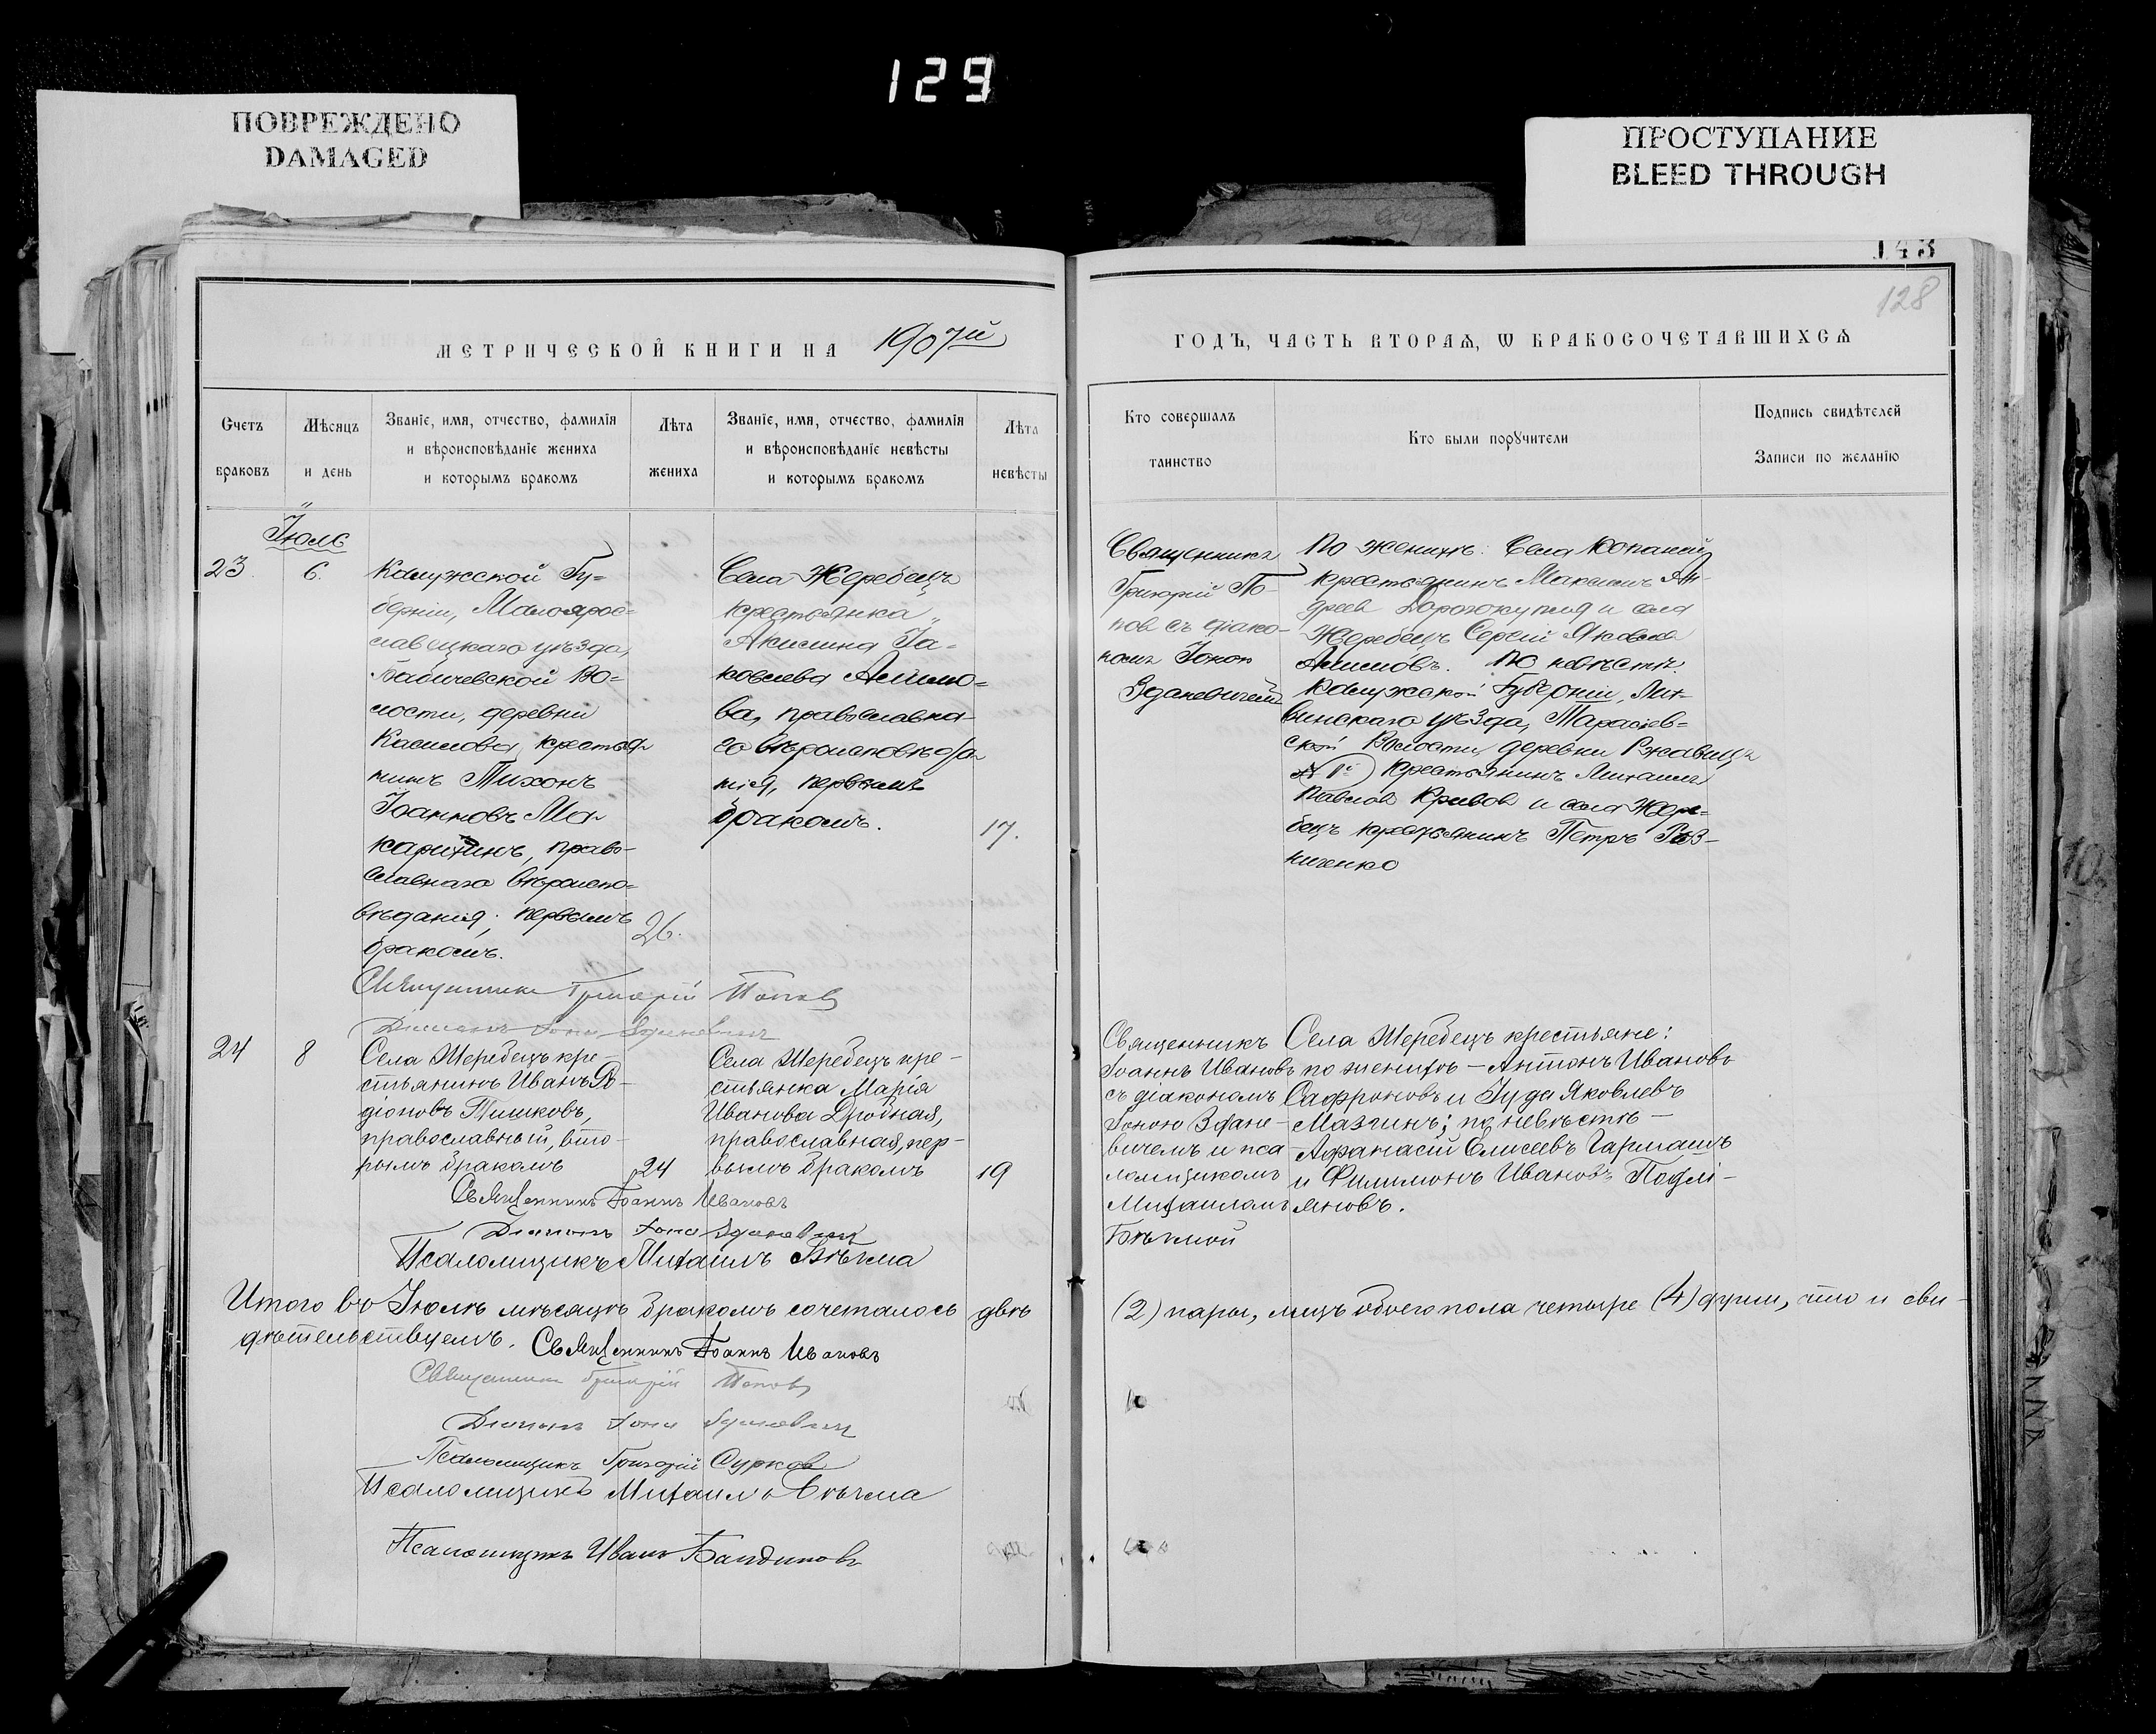 129
ПОВРЕЖДЕНО
DAMAGED
ПРОСТУПАНИЕ
BLEED THROUGH
143
128
МЕТРИЧЕСКОЙ КНИГИ НА 1907й
ГОДЪ, ЧАСТЬ ВТОРАѦ, Ѡ БРАКОСОЧЕТАВШИХСѦ
Счетъ
браковъ
Мѣсяцъ
и день
Званіе, имя, отчество, фамилія
и вѣроисповѣданіе жениха
и которымъ бракомъ
Лѣта
жениха
Званіе, имя, отчество, фамилія
и вѣроисповѣданіе невѣсты
и которымъ бракомъ
Лѣта
невѣсты
Кто совершалъ
таинство
Кто были порꙋчители
Подпись свидѣтелей
Записи по желанію
Іюль
23.
6.
Калужской Гу=
берніи, Малояро=
славецкаго уѣзда,
Бабичевской Во=
лости, деревни
крестья-
нинъ Тихонъ
Іоанновъ Ма-
право-
славнаго вѣроиспо=
вѣданія, первымъ
бракомъ.
26.
Села Жеребецъ
крестьянка
Акилина Іа=
ковлева Алимо=
ва, православна-
го вѣроисповѣда-
нія, первымъ
бракомъ.
17.
Священникъ
Григорій По-
повъ съ діако-
номъ Іоною
Зданевичемъ
По женихѣ: Села Копаней
крестьянинъ Максимъ Ан-
дреевъ Дорогокупля и села
Жеребецъ Сергій Яковлевъ
Алимовъ. По невѣстѣ:
Калужской Губерніи, Лих-
винскаго уѣзда,
ской Волости, деревни Ржавецъ
№ 1й крестьянинъ Михаилъ
Павловъ Кривовъ и села Жере=
бецъ крестьянинъ Петръ Рѣз-
ниченко
Священникъ Григорій Поповъ
Діаконъ Іона Зданевичъ
24
8
Села Жеребецъ кре-
стьянинъ Иванъ Ро-
діоновъ Тишковъ,
православный, вто-
рымъ бракомъ
24
Села Жеребецъ кре-
стьянка Марія
Иванова Дробная,
православная, пер-
вымъ бракомъ
19
Священникъ
Іоаннъ Ивановъ
съ діакономъ
Іоною Здане-
вичемъ и пса
ломщикомъ
Михаиломъ
Бѣлмой
Села Жеребецъ крестьяне:
по женихѣ – Антонъ Ивановъ
Сафроновъ и Іуда Яковлевъ
Мазгинъ; по невѣстѣ –
Афанасій Елисеевъ Гармашъ
и Филимонъ Ивановъ Подлі-
яновъ.
Священникъ Іоаннъ Ивановъ
Діаконъ Іона Зданевичъ
Псаломщикъ Михаилъ Бѣлма
Итого въ Іюлѣ мѣсяцѣ бракомъ сочеталось двѣ (2) пары, лицъ обоего пола четыре (4) души, что и сви-
дѣтельствуемъ. Священникъ Іоаннъ Ивановъ
Священникъ Григорій Поповъ
Діаконъ Іона Зданевичъ
Псаломщикъ Григорій Сурковъ
Псаломщикъ Михаилъ Бѣлма
Псаломщикъ Иванъ Бандиновъ